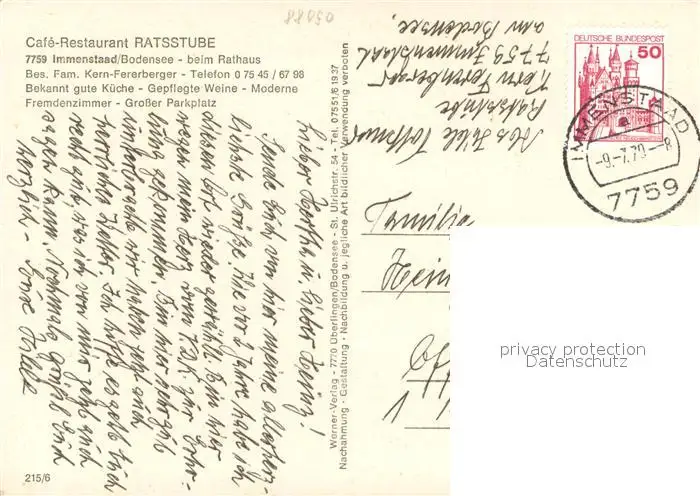 88050
Café-Restaurant RATSSTUBE
7759 Immenstaad/Bodensee - beim Rathaus
Bes. Fam. Kern-Fererberger - Telefon 0 75 45 / 67 98
Bekannt gute Küche - Gepflegte Weine - Moderne
Fremdenzimmer - Großer Parkplatz
Liebe Hertha u. lieber Heinz!
Sende Euch von hier meine allerherz-
lichste Grüße. Wie vor 2 Jahre habe ich
diesen Ort wieder gewählt. Bin hier
wegen mein Herz vom 1.7. zur Erho-
lung gekommen. Bin hier sehr gut
untergebracht wir haben jetzt auch
herrliches Wetter. Ich hoffe es geht Euch
recht gut was ich von mir jetzt auch
sagen kann. Nochmals grüßt Euch
herzlich - Eure
215/6
Werner-Verlag - 7770 Überlingen/Bodensee - St. Ulrichstr. 54 - Tel. 07551/61937
Nachahmung - Gestaltung - Nachbildung u. jegliche Art bildlicher Verwendung verboten
Abs.
Ratsstube
Kern Fererberger
7759 Immenstaad
am Bodensee
DEUTSCHE BUNDESPOST
50
IMMENSTAAD
a
-9.-7.79 -8
7759
Familie
Hein
1
privacy protection
Datenschutz